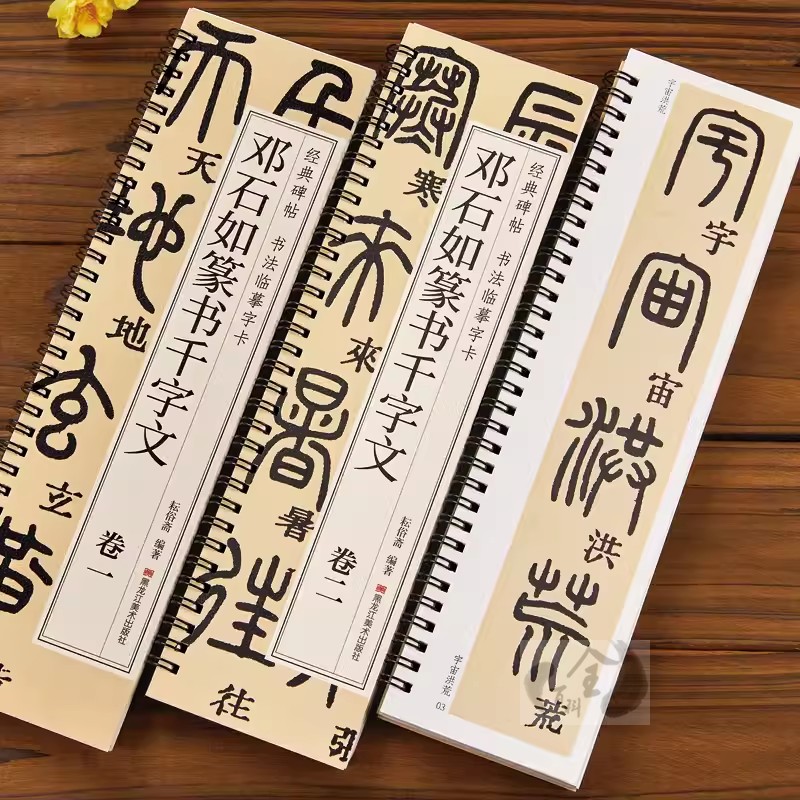 天
地
玄
天
地
经典碑帖 书法临摹字卡
邓石如篆书千字文
卷一
耘俗斋 编著
黑龙江美术出版社
寒
來
暑
往
寒
來
暑
往
张
经典碑帖 书法临摹字卡
邓石如篆书千字文
卷二
耘俗斋 编著
黑龙江美术出版社
宇宙洪荒
宇
宙
洪
荒
宇
宙
洪
荒
宇宙洪荒
03